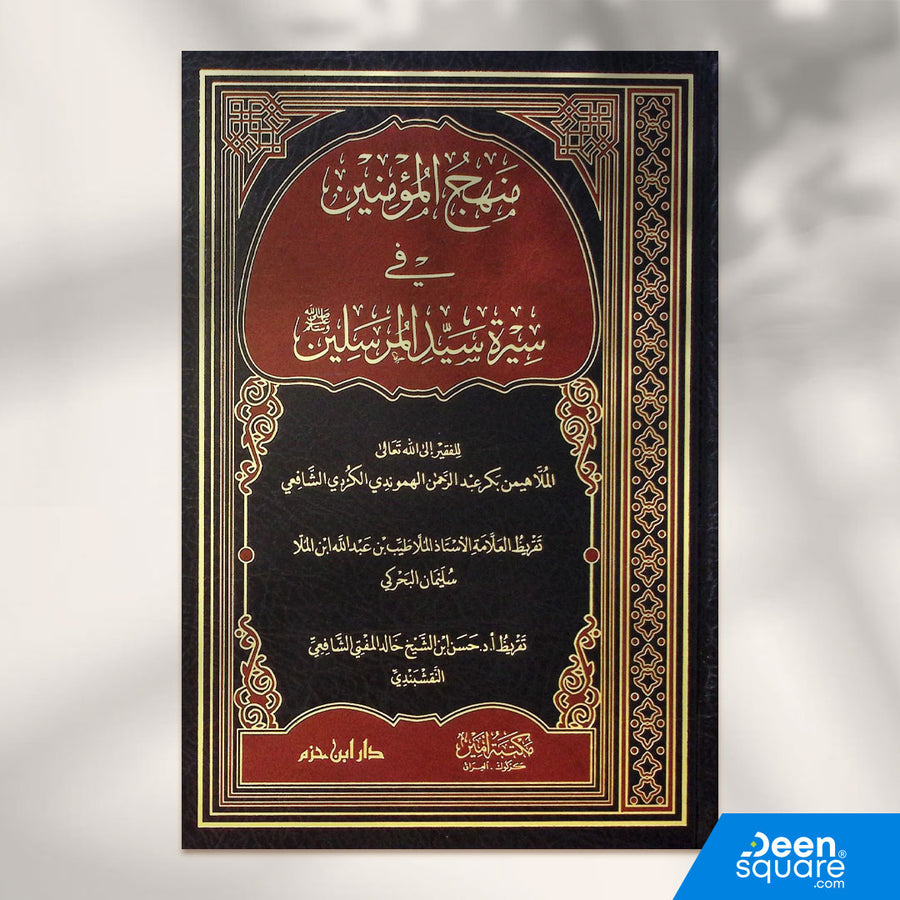 مَنهَجُ المُؤمِنِين
في
سِيْرَة سَيِّدِ المُرسَلِين ﷺ
للفقير إلى الله تَعَالى
المُلَّا هيمن بكر عبْد الرَّحمن الهموندي الكُرْدي الشَّافعي
تَقْريظ العلَّامَة الأسْتاذ المُلا طيِّب بن عَبد الله ابْن المُلَا
سُليْمَان البَحْركي
تَقْريظ أ.د. حَسَن ابْن الشَّيخ خَالد المُفْتي الشَّافعيّ
النَّقشبَنديّ
مَكتبَة أمِير
كركوك - العراق
دار ابن حزم
Deen®
square
.com